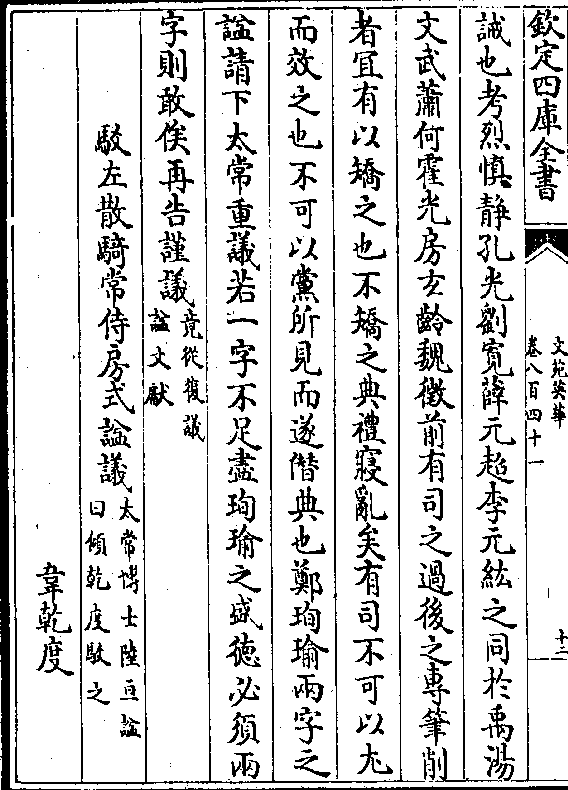 欽定四庫全書
文苑英華
卷八百四十一
十二
誠也考烈慎靜孔光劉寬薛元超李元紘之同於禹湯
文武蕭何霍光房玄齡魏徵前有司之過後之專筆削
者宜有以矯之也不矯之典禮寢亂矣有司不可以尤
而效之也不可以黨所見而遂僭典也鄭珣瑜兩字之
謚請下太常重議若一字不足盡珣瑜之盛徳必須兩
字則敢俟再告謹議竟從復議
謚文獻
駁左散騎常侍房式謚議太常博士陸亘謚
曰傾乾度駁之
韋乾度